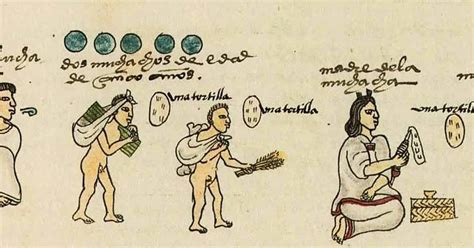 dos muchachos de edad
de çinco años.
una tortilla
una tortilla
madre de la
muchacha
una tortilla